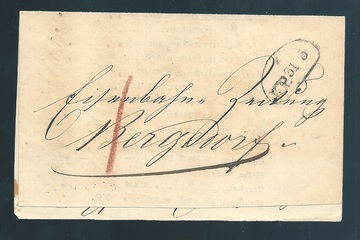 Eisenbahn-Zeitung
Bergedorf.
31 5